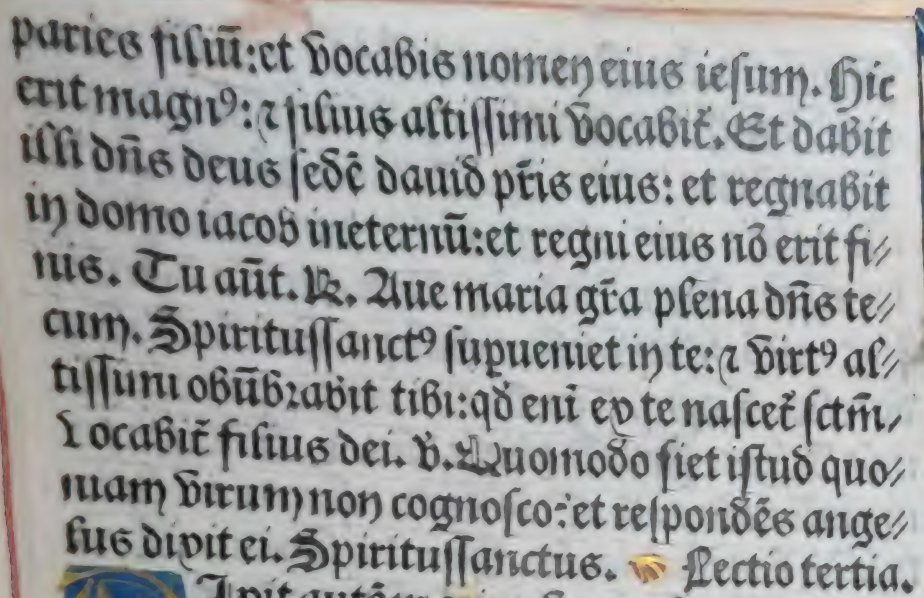 paries filiū: et vocabis nomen eius iesum. Hic
erit magnꝰ: ⁊ filius altissimi vocabit᷑. Et dabit
illi dn̄s deus sedē dauid pr̄is eius: et regnabit
in domo iacob ineternū: et regni eius nō erit fi⸗
nis. Tu aūt. ℟. Aue maria gr̄a plena dn̄s te⸗
cum. Spiritussanctꝰ supueniet in te: ⁊ virtꝰ al⸗
tissimi obūbrabit tibi: qd̄ eni ex te nascet᷑ sctm̄,
Vocabit᷑ filius dei. v̄. Quomodo fiet istud quo⸗
niam virum non cognosco: et respondēs ange⸗
lus dixit ei. Spiritussanctus. Lectio tertia.